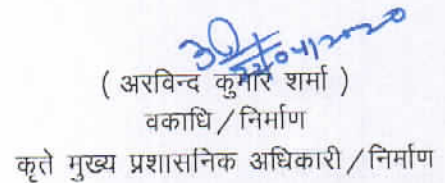 ( अरविन्द कुमार शर्मा )
वकाधि / निर्माण
कृते मुख्य प्रशासनिक अधिकारी / निर्माण